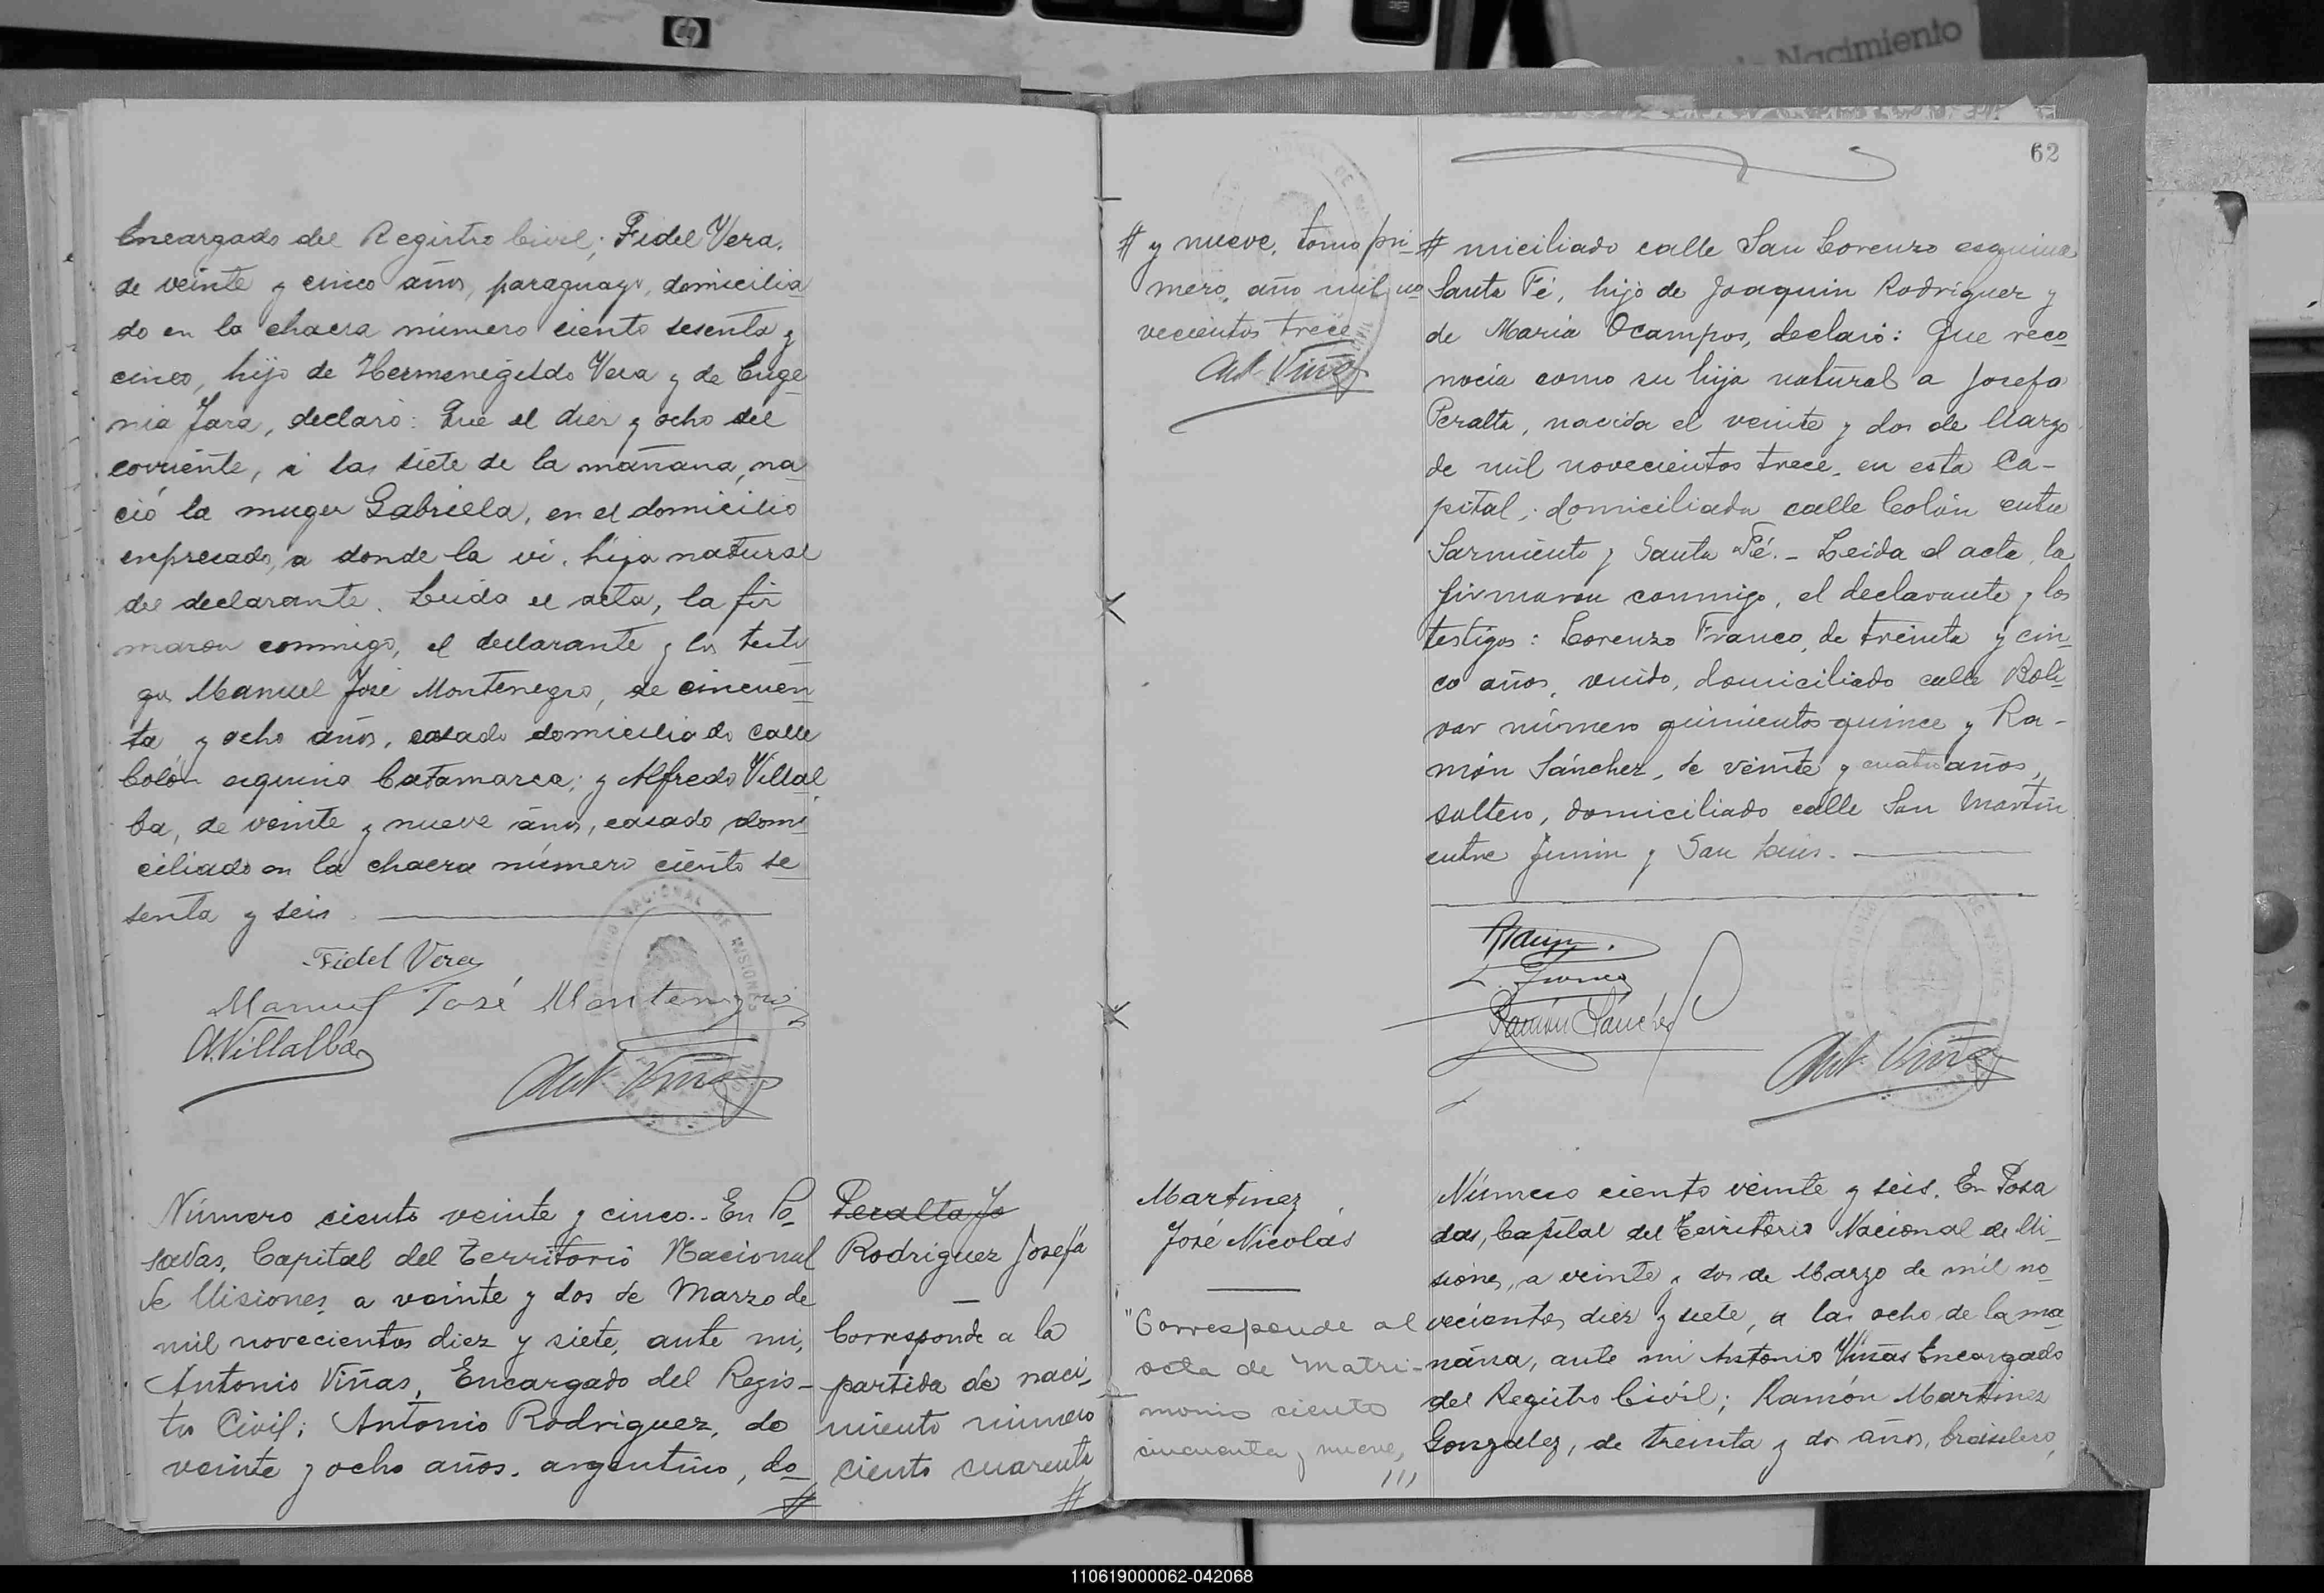 Nacimiento
Encargado del Registro Civil; Fidel Vera,
de veinte y cinco años, paraguayo, domicilia
do en la chacra número ciento sesenta y
cinco, hijo de Hermenegildo Vera y de Euge
nia Jara, declaró: Que el diez y ocho del
corriente, á las siete de la mañana, na
ció la muger Gabriela, en el domicilio
expresado, a donde la vi, hija natural
del declarante. Leida el acta, la fir
maron conmigo, el declarante y los testi
gos Manuel José Montenegro, de cincuen
ta y ocho años, casado domiciliado calle
Colón esquina Catamarca; y Alfredo Villal
ba, de veinte y nueve años, casado domi
ciliado en la chacra número ciento se
senta y seis.
Fidel Vera
Manuel José Montenegro
A. Villalba
Ant. Viñas
Número ciento veinte y cinco.. En Po
sadas, Capital del Territorio Nacional
de Misiones, a veinte y dos de Marzo de
mil novecientos diez y siete, ante mi,
Antonio Viñas, Encargado del Regis-
tro Civil; Antonio Rodriguez, de
veinte y ocho años, argentino, do
#
Peralta Jo
Rodriguez Josefa
Corresponde a la
partida de naci-
miento número
ciento cuarenta
#
62
# y nueve, tomo pri-
mero, año mil no
vecientos trece
Ant. Viñas
# miciliado calle San Lorenzo esquina
Santa Fé, hijo de Joaquin Rodríguez y
de Maria Ocampos, declaró: Que reco
nocia como su hija natural a Josefa
Peralta, nacida el veinte y dos de Marzo
de mil novecientos trece, en esta Ca-
pital, domiciliada calle Colón entre
Sarmiento y Santa Fé. - Leida el acta, la
firmaron conmigo, el declarante y los
testigos: Lorenzo Franco, de treinta y cin
co años, viudo, domiciliado calle Bolí
var número quinientos quince y Ra-
món Sánchez, de veinte y cuatro años,
soltero, domiciliado calle San Martín
entre Junin y San Luis.
L. Franco
Ramón Sánchez
Ant. Viñas
Martinez
José Nicolás
"Corresponde al
acta de matri-
monio ciento
cincuenta y nueve,
111
Número ciento veinte y seis. En Posa
das, Capital del Territorio Nacional de Mi-
siones, a veinte y dos de Marzo de mil no
vecientos diez y siete, a las ocho de la ma
ñana, ante mi Antonio Viñas Encargado
del Registro Civil; Ramón Martinez
Gonzalez, de treinta y dos años, brasilero,
110619000062-042068